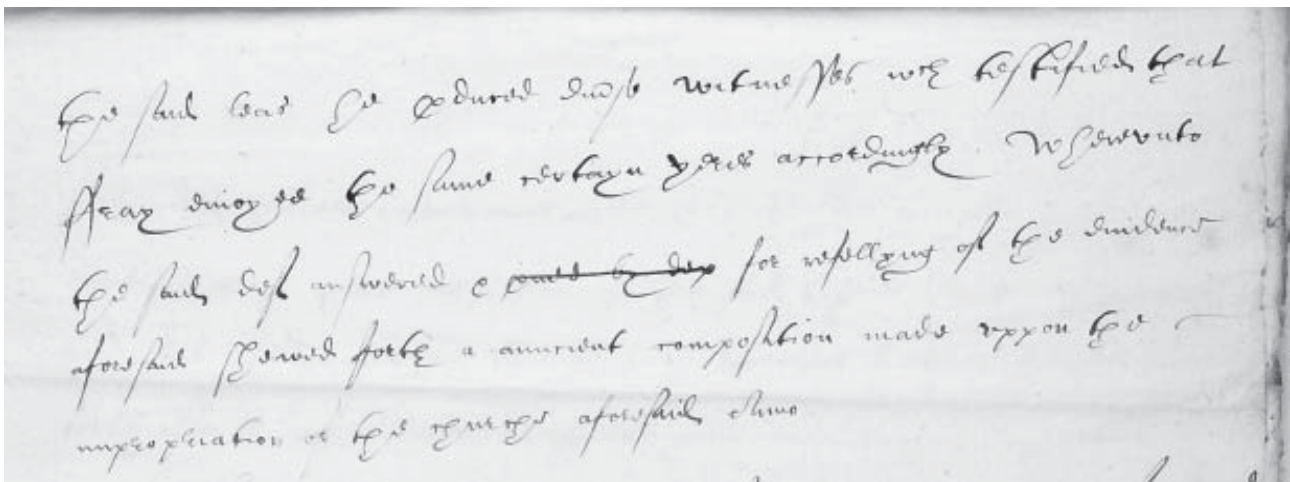 the said leas he pduced div̄se witnesses wch testified that
ffray enioyed the same certayn yeres accordingly. Wherevnto
the said def answered & pved by dep for refellyng of the evidence
aforesaid shewed forth a auncient composition made vppon the
impropriation of the churche aforesaid Anno